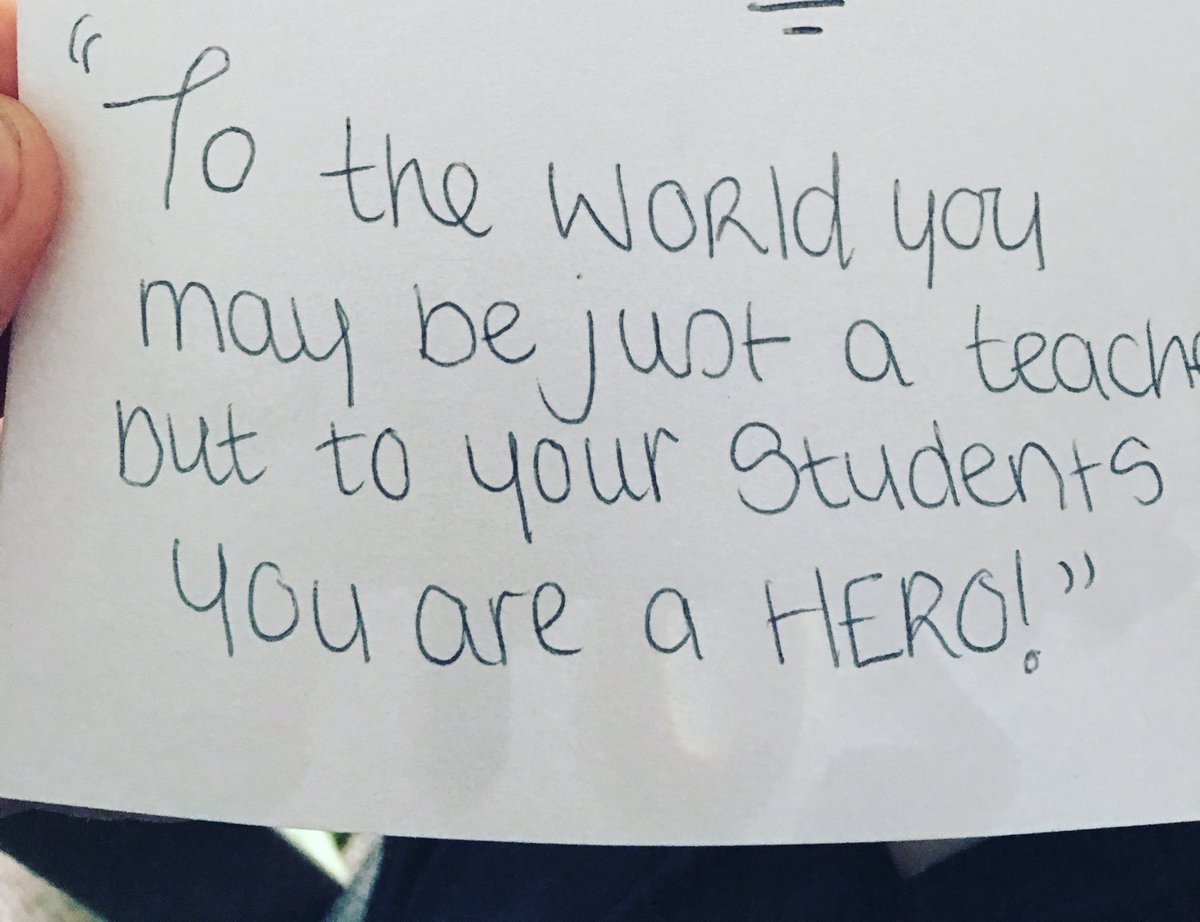 “To the WORld you
may be just a teache
but to your Students
you are a HERO!”